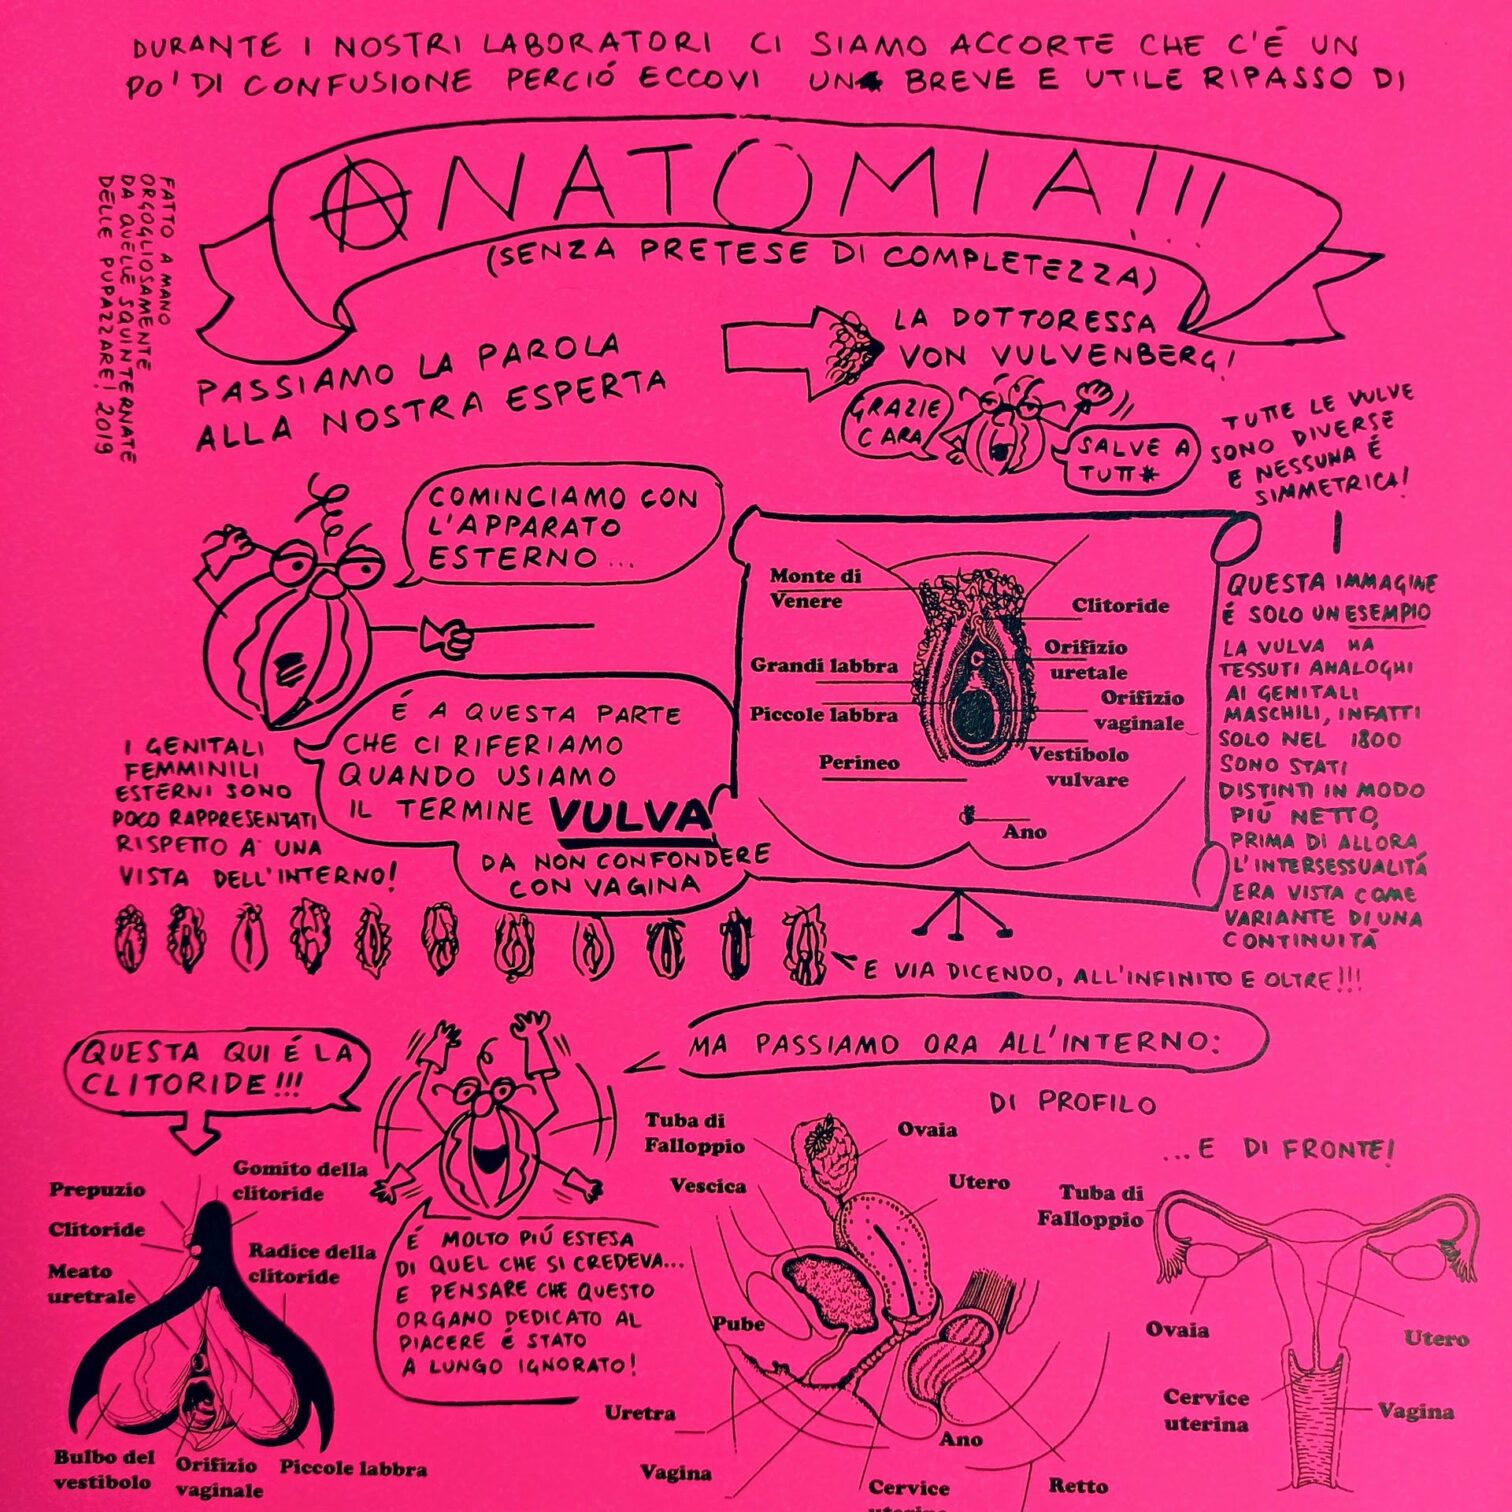 DURANTE I NOSTRI LABORATORI CI SIAMO ACCORTE CHE C'É UN
PO' DI CONFUSIONE PERCIÓ ECCOVI UN BREVE E UTILE RIPASSO DI
ANATOMIA!!!
(SENZA PRETESE DI COMPLETEZZA)
FATTO A MANO
ORGOGLIOSAMENTE
DA QUELLE SQUINTERNATE
DELLE PUPAZZARE! 2019
PASSIAMO LA PAROLA
ALLA NOSTRA ESPERTA
LA DOTTORESSA
VON VULVENBERG!
GRAZIE
CARA
SALVE A
TUTT*
TUTTE LE VULVE
SONO DIVERSE
E NESSUNA É
SIMMETRICA!
COMINCIAMO CON
L'APPARATO
ESTERNO...
Monte di
Venere
Clitoride
Grandi labbra
Orifizio
uretale
Piccole labbra
Orifizio
vaginale
Perineo
Vestibolo
vulvare
Ano
QUESTA IMMAGINE
É SOLO UN ESEMPIO
LA VULVA HA
TESSUTI ANALOGHI
AI GENITALI
MASCHILI, INFATTI
SOLO NEL 1800
SONO STATI
DISTINTI IN MODO
PIÚ NETTO,
PRIMA DI ALLORA
L'INTERSESSUALITÁ
ERA VISTA COME
VARIANTE DI UNA
CONTINUITÁ
É A QUESTA PARTE
CHE CI RIFERIAMO
QUANDO USIAMO
IL TERMINE VULVA
DA NON CONFONDERE
CON VAGINA
I GENITALI
FEMMINILI
ESTERNI SONO
POCO RAPPRESENTATI
RISPETTO A UNA
VISTA DELL'INTERNO!
E VIA DICENDO, ALL'INFINITO E OLTRE!!!
QUESTA QUI É LA
CLITORIDE!!!
MA PASSIAMO ORA ALL'INTERNO:
DI PROFILO
...E DI FRONTE!
Prepuzio
Gomito della
clitoride
Clitoride
Radice della
clitoride
Meato
uretrale
Bulbo del
vestibolo
Orifizio
vaginale
Piccole labbra
É MOLTO PIÚ ESTESA
DI QUEL CHE SI CREDEVA...
E PENSARE CHE QUESTO
ORGANO DEDICATO AL
PIACERE É STATO
A LUNGO IGNORATO!
Tuba di
Falloppio
Ovaia
Vescica
Utero
Pube
Uretra
Vagina
Ano
Cervice
uterina
Retto
Tuba di
Falloppio
Ovaia
Utero
Cervice
uterina
Vagina